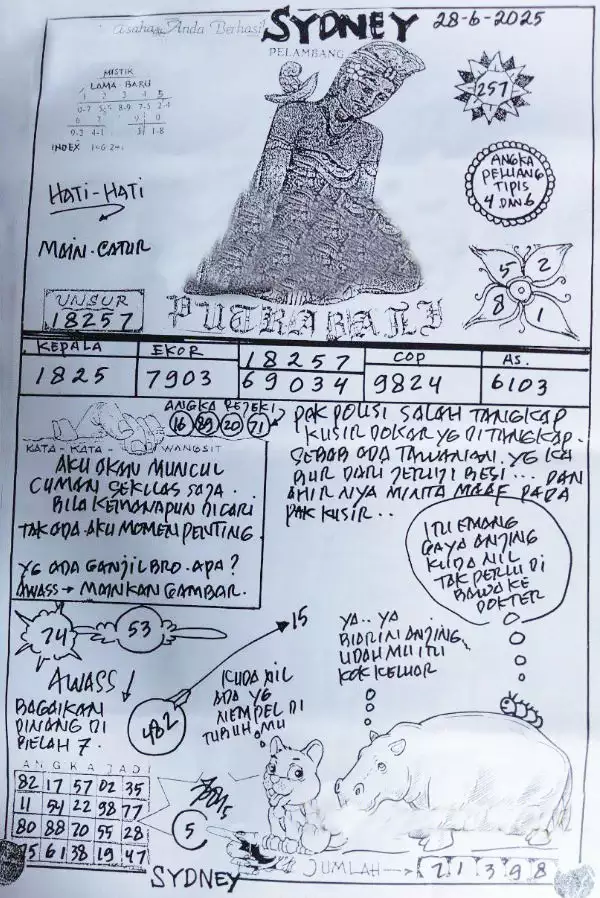 Asaha Anda Berhasil
SYDNEY
28-6-2025
PELAMBANG
MISTIK
LAMA BARU
1 2 3 4 5
0-7 5-5 8-9 7-5 2-4
6 7 9 0
9-3 4-1 1-8
INDEX
HATI-HATI
MAIN-CATUR
257
ANGKA
PELUANG
TIPIS
4 DAN 6
5 2
8 1
UNSUR
18257
PUTRA BALI
KEPALA
1825
EKOR
7903
18257
69034
COP
9824
AS.
6103
ANGKA REJEKI
16 89 20 71
KATA-KATA WANGSIT
AKU AKAN MUNCUL
CUMAN SEKILAS SAJA.
BILA KEMANAPUN DICARI
TAK ADA. AKU MOMEN PENTING.
YG ADA GANJIL BRO. APA?
AWASS → MAINKAN GAMBAR.
PAK POLISI SALAH TANGKAP
KUSIR DOKAR YG DI TANGKAP.
SEBAB ADA TAWANAN. YG KA
BUR DARI JERUJI BESI... DAN
AHIR NYA MINTA MAAF PADA
PAK KUSIR..
ITU EMANG
GAYA ANJING
KUDA NIL
TAK PERLU DI
BAWA KE
DOKTER
74
53
15
AWASS!
BAGAIKAN
PINANG DI
BELAH 7.
482
KUDA NIL
ADA YG
NEMPEL DI
TUBUH MU
YA.. YA
BIARIN ANJING
UDAH MU ITU
KOK KELUAR
ANGKA JADI
82 17 57 02 35
11 54 22 98 77
80 88 70 55 28
15 61 38 19 47
5
JUMLAH → 2 1 3 9 8
SYDNEY